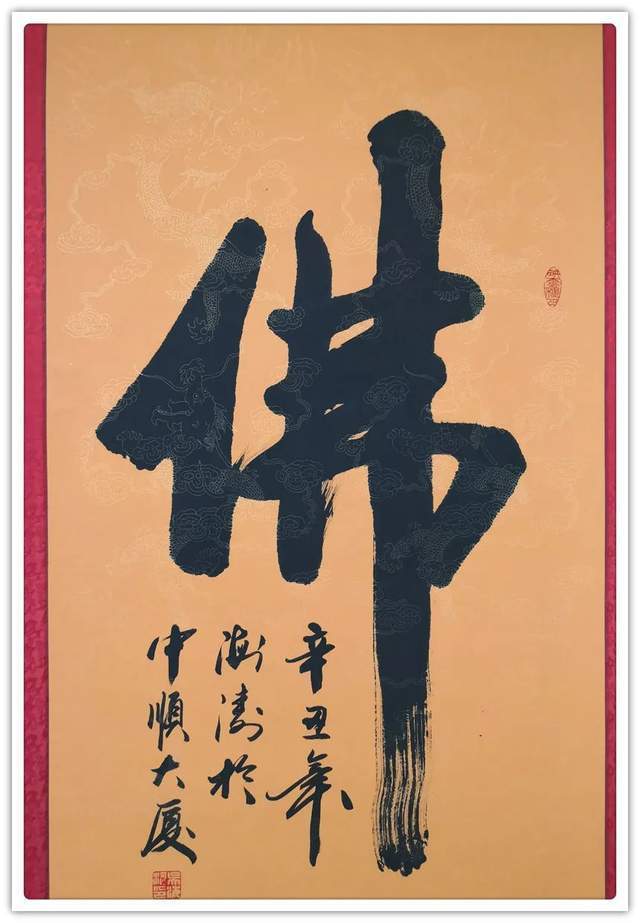 佛
辛丑年
海濤於
中順大厦